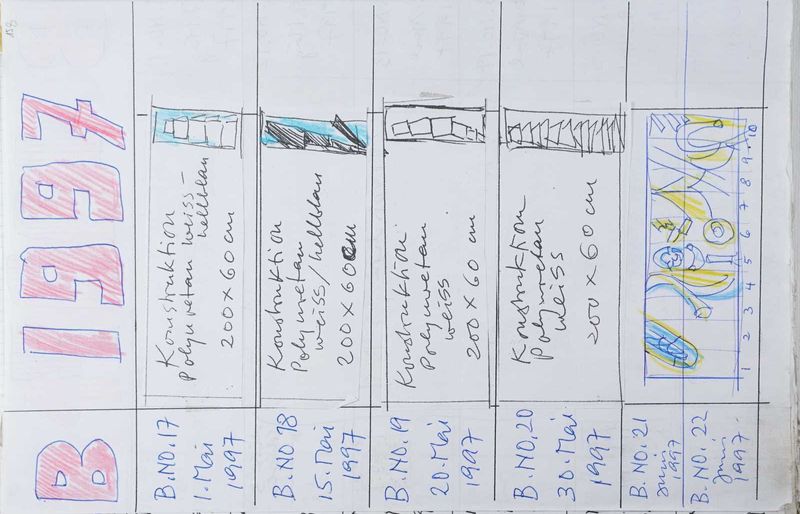 158
B 1997
B.NO.17
1. Mai
1997
Konstruktion
Polyuretan weiss-
hellblau
200 x 60 cm
B.NO 18
15. Mai
1997
Konstruktion
Polyuretan
weiss/hellblau
200 x 60 cm
B.NO.19
20. Mai
1997
Konstruktion
Polyuretan
weiss
200 x 60 cm
B.NO.20
30. Mai
1997
Konstruktion
Polyuretan
weiss
200 x 60 cm
B.NO.21
Juni
1997
B.NO.22
Juni
1997.
1 2 3 4 5 6 7 8 9 10